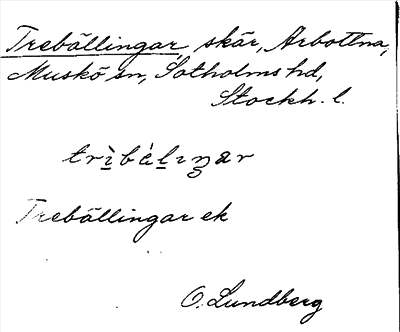 Trebällingar, skär, Arbottna,
Muskö sn, Sotholms hd,
Stockh. l.
trìbélıŋar
Trebällingar ek
O. Lundberg